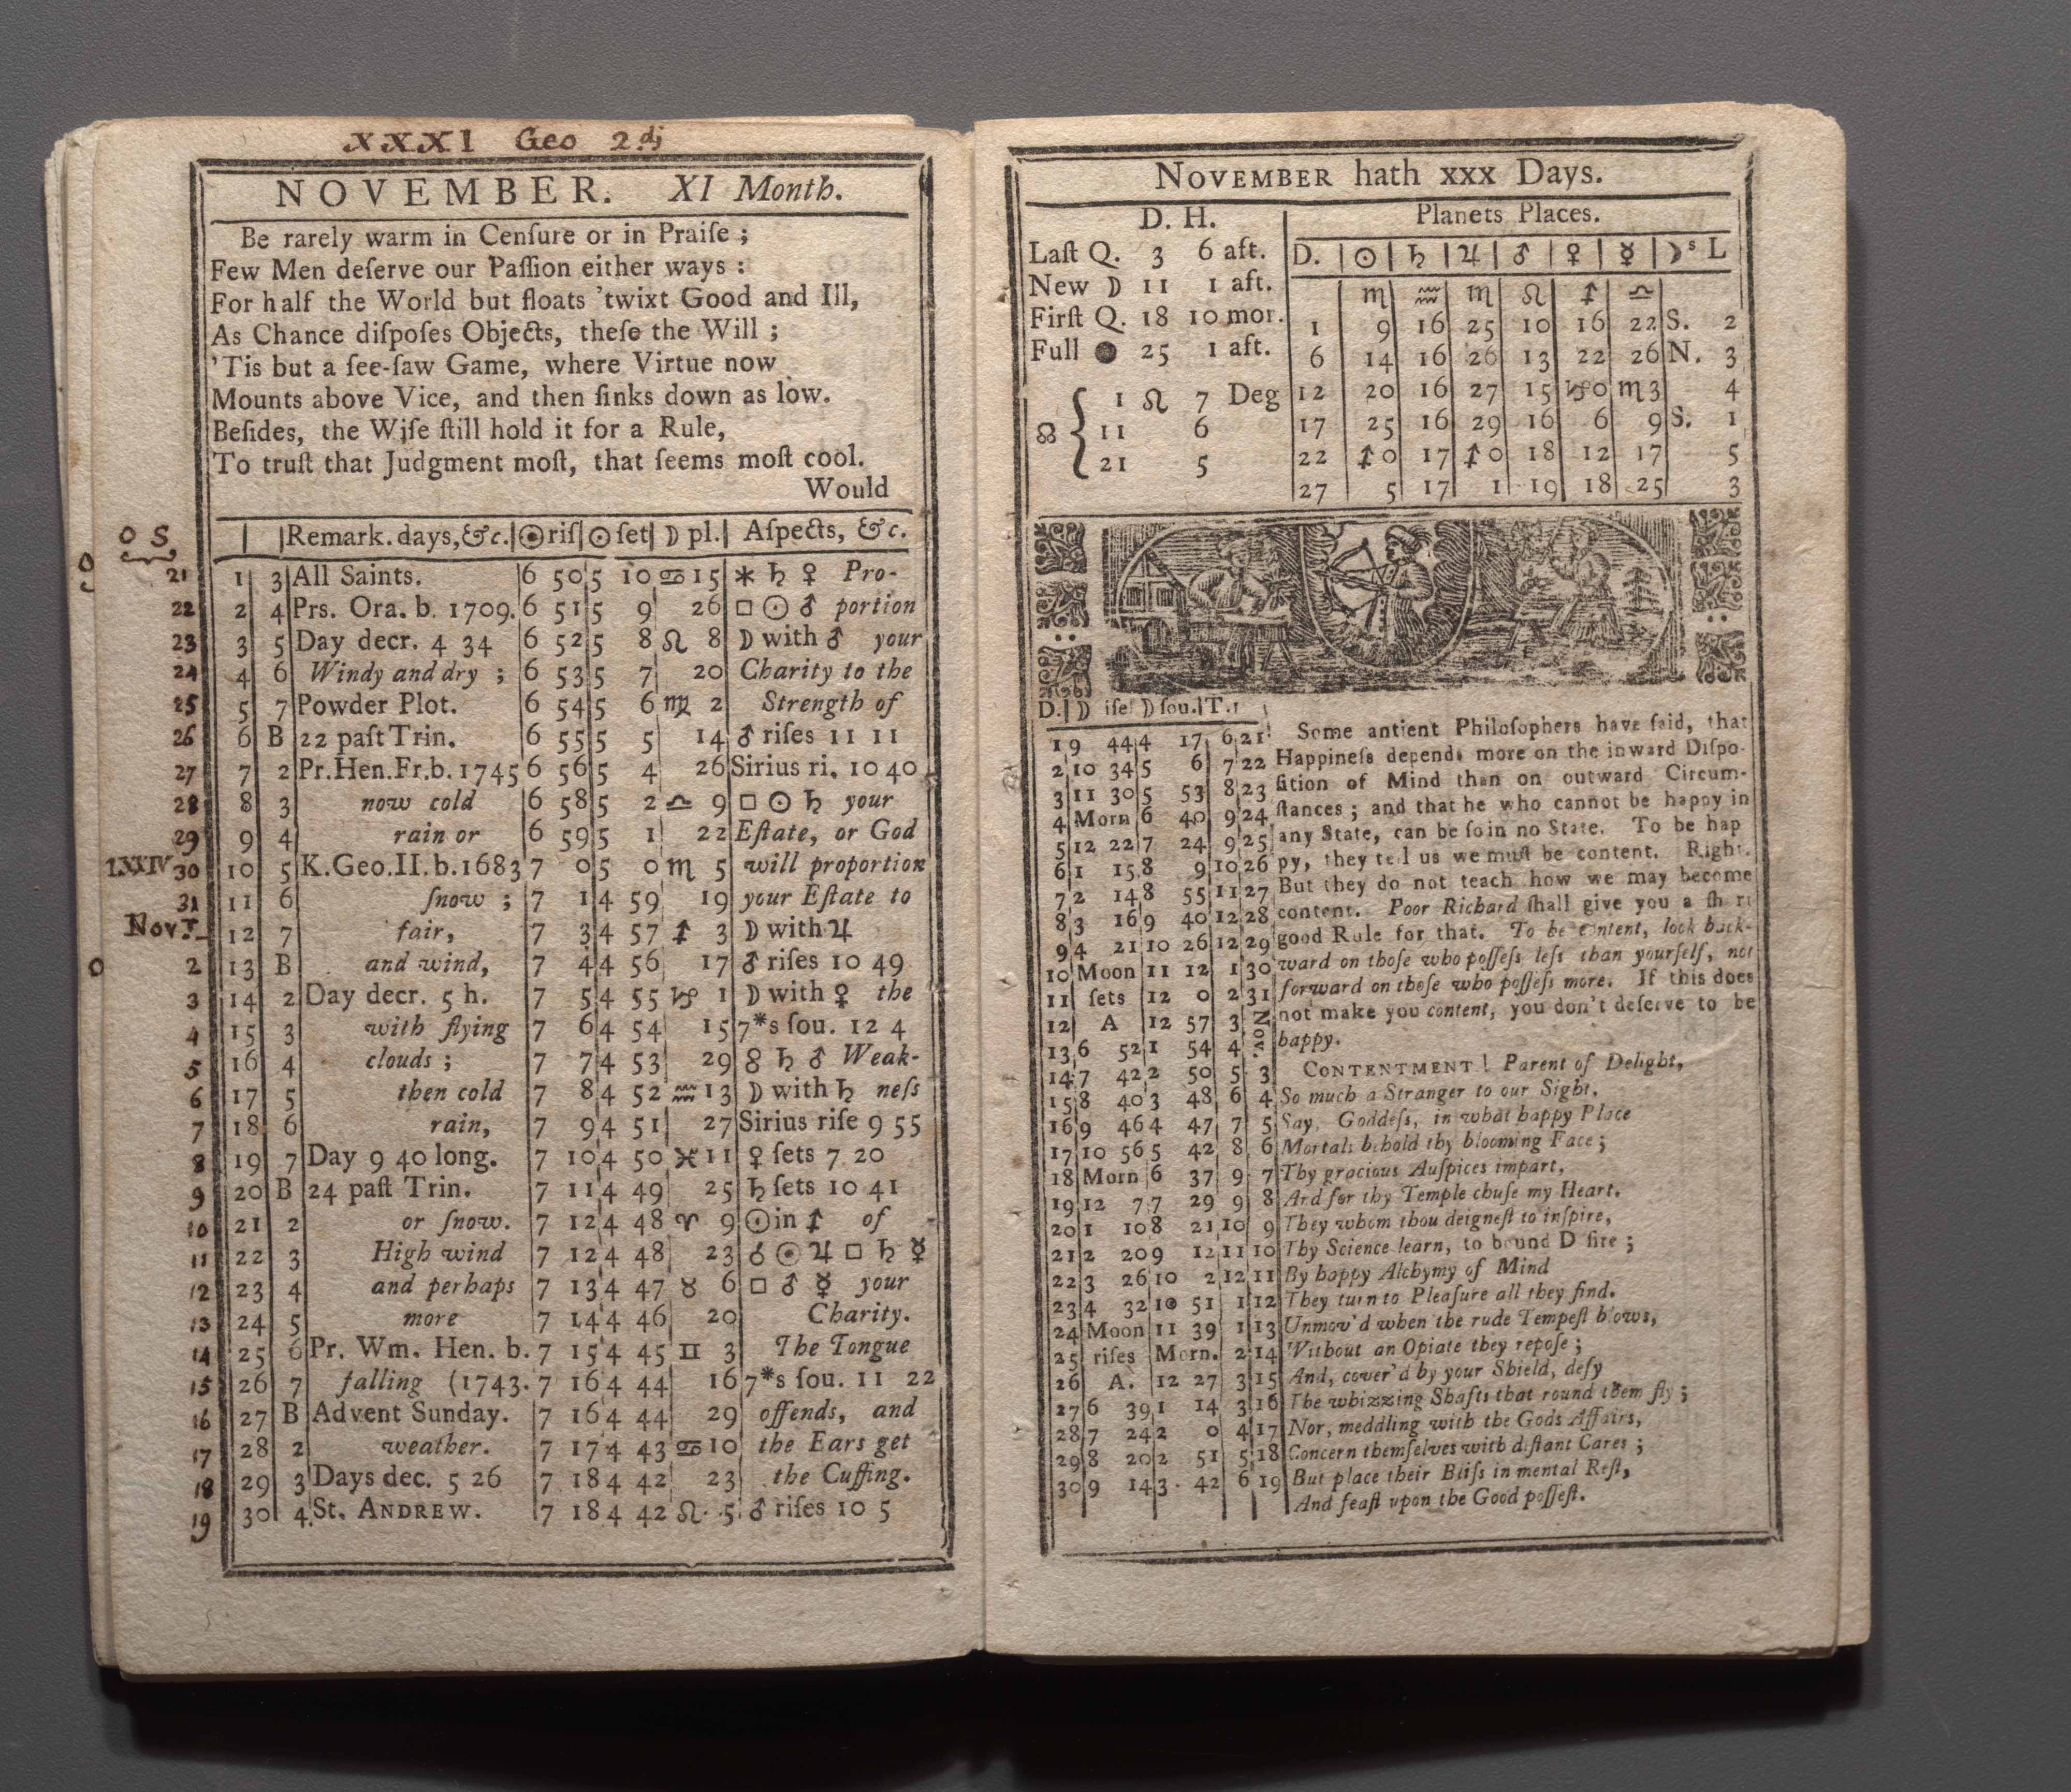 XXXI Geo 2di
NOVEMBER. XI Month.
Be rarely warm in Cenſure or in Praiſe ;
Few Men deſerve our Paſſion either ways :
For half the World but floats 'twixt Good and Ill,
As Chance diſpoſes Objects, theſe the Will ;
'Tis but a ſee-ſaw Game, where Virtue now
Mounts above Vice, and then ſinks down as low.
Beſides, the Wiſe ſtill hold it for a Rule,
To truſt that Judgment moſt, that ſeems moſt cool.
Would
O S
| |Remark. days, &c.|☉riſ|☉ſet|☽ pl.| Aſpects, &c.
21 1 3 All Saints. 6 50 5 10 ♋ 15 ⚹ ♄ ♀ Pro-
22 2 4 Prs. Ora. b. 1709. 6 51 5 9 26 □ ☉ ♂ portion
23 3 5 Day decr. 4 34 6 52 5 8 ♌ 8 ☽ with ♂ your
24 4 6 Windy and dry ; 6 53 5 7 20 Charity to the
25 5 7 Powder Plot. 6 54 5 6 ♍ 2 Strength of
26 6 B 22 paſt Trin. 6 55 5 5 14 ♂ riſes 11 11
27 7 2 Pr. Hen. Fr. b. 1745 6 56 5 4 26 Sirius ri. 10 40
28 8 3 now cold 6 58 5 2 ♎ 9 □ ☉ ♄ your
29 9 4 rain or 6 59 5 1 22 Eſtate, or God
LXXIV 30 10 5 K. Geo. II. b. 1683 7 0 5 0 ♏ 5 will proportion
31 11 6 ſnow ; 7 1 4 59 19 your Eſtate to
Nov. 1 12 7 fair, 7 3 4 57 ♐ 3 ☽ with ♃
2 13 B and wind, 7 4 4 56 17 ♂ riſes 10 49
3 14 2 Day decr. 5 h. 7 5 4 55 ♑ 1 ☽ with ♀ the
4 15 3 with flying 7 6 4 54 15 7*s ſou. 12 4
5 16 4 clouds ; 7 7 4 53 29 ☍ ♄ ♂ Weak-
6 17 5 then cold 7 8 4 52 ♒ 13 ☽ with ♄ neſs
7 18 6 rain, 7 9 4 51 27 Sirius riſe 9 55
8 19 7 Day 9 40 long. 7 10 4 50 ♓ 11 ♀ ſets 7 20
9 20 B 24 paſt Trin. 7 11 4 49 25 ♄ ſets 10 41
10 21 2 or ſnow. 7 12 4 48 ♈ 9 ☉ in ♐ of
11 22 3 High wind 7 12 4 48 23 ☌ ☉ ♃ □ ♄ ☿
12 23 4 and perhaps 7 13 4 47 ♉ 6 □ ♂ ☿ your
13 24 5 more 7 14 4 46 20 Charity.
14 25 6 Pr. Wm. Hen. b. 7 15 4 45 ♊ 3 The Tongue
15 26 7 falling (1743. 7 16 4 44 16 7*s ſou. 11 22
16 27 B Advent Sunday. 7 16 4 44 29 offends, and
17 28 2 weather. 7 17 4 43 ♋ 10 the Ears get
18 29 3 Days dec. 5 26 7 18 4 42 23 the Cuffing.
19 30 4 St. ANDREW. 7 18 4 42 ♌ 5 ♂ riſes 10 5
NOVEMBER hath xxx Days.
D. H.
Laſt Q. 3 6 aft.
New ☽ 11 1 aft.
Firſt Q. 18 10 mor.
Full ● 25 1 aft.
1 ♌ 7 Deg
☊ { 11 6
21 5
Planets Places.
D. | ☉ | ♄ | ♃ | ♂ | ♀ | ☿ | ☽s L
♏ ♒ ♏ ♌ ♐ ♎
1 9 16 25 10 16 22 S. 2
6 14 16 26 13 22 26 N. 3
12 20 16 27 15 ♑0 ♏3 4
17 25 16 29 16 6 9 S. 1
22 ♐0 17 ♐0 18 12 17 5
27 5 17 1 19 18 25 3
D.| ☽ iſe| ☽ ſou.|T.
1 9 44 4 17 6 21
2 10 34 5 6 7 22
3 11 30 5 53 8 23
4 Morn 6 40 9 24
5 12 22 7 24 9 25
6 1 15 8 9 10 26
7 2 14 8 55 11 27
8 3 16 9 40 12 28
9 4 21 10 26 12 29
10 Moon 11 12 1 30
11 ſets 12 0 2 31
12 A 12 57 3 Nov.
13 6 52 1 54 4
14 7 42 2 50 5 3
15 8 40 3 48 6 4
16 9 46 4 47 7 5
17 10 56 5 42 8 6
18 Morn 6 37 9 7
19 12 7 7 29 9 8
20 1 10 8 21 10 9
21 2 20 9 12 11 10
22 3 26 10 2 12 11
23 4 32 10 51 1 12
24 Moon 11 39 1 13
25 riſes Morn. 2 14
26 A. 12 27 3 15
27 6 39 1 14 3 16
28 7 24 2 0 4 17
29 8 20 2 51 5 18
30 9 14 3 42 6 19
Some antient Philoſophers have ſaid, that
Happineſs depends more on the inward Diſpo-
ſition of Mind than on outward Circum-
ſtances ; and that he who cannot be happy in
any State, can be ſo in no State. To be hap
py, they tell us we muſt be content. Right.
But they do not teach how we may become
content. Poor Richard ſhall give you a ſh rt
good Rule for that. To be content, look back-
ward on thoſe who poſſeſs leſs than yourſelf, not
forward on theſe who poſſeſs more. If this does
not make you content, you don't deſerve to be
happy.
CONTENTMENT ! Parent of Delight,
So much a Stranger to our Sight,
Say, Goddeſs, in what happy Place
Mortals behold thy blooming Face ;
Thy gracious Auſpices impart,
And for thy Temple chuſe my Heart.
They whom thou deigneſt to inſpire,
Thy Science learn, to bound D ſire ;
By happy Alchymy of Mind
They turn to Pleaſure all they find.
Unmov'd when the rude Tempeſt blows,
Without an Opiate they repoſe ;
And, cover'd by your Shield, defy
The whizzing Shafts that round them fly ;
Nor, meddling with the Gods Affairs,
Concern themſelves with diſtant Cares ;
But place their Bliſs in mental Reſt,
And feaſt upon the Good poſſeſt.